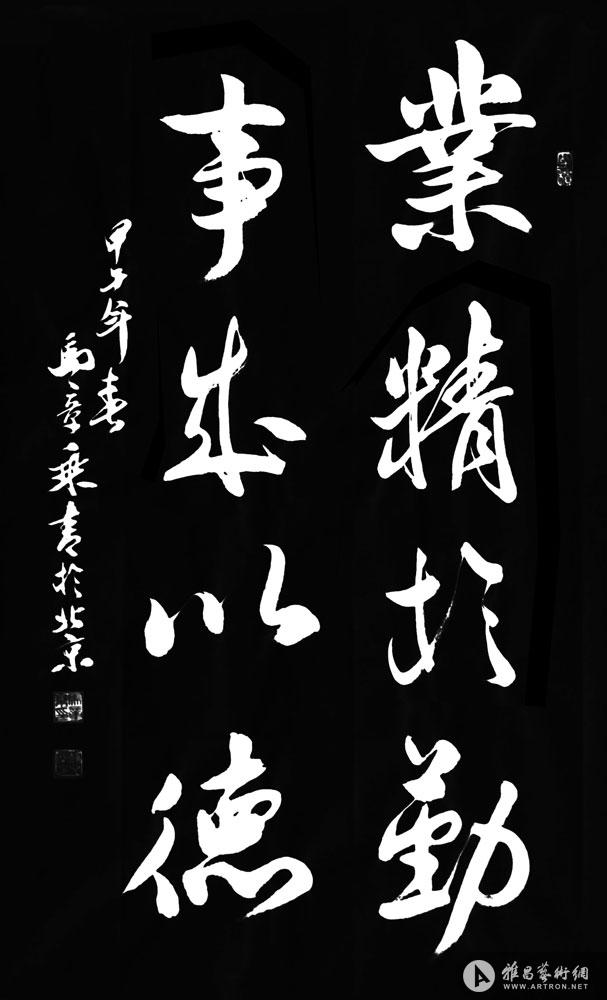 業精於勤
事成以德
甲午年春
禹章乘青於北京
雅昌藝術網
WWW.ARTRON.NET